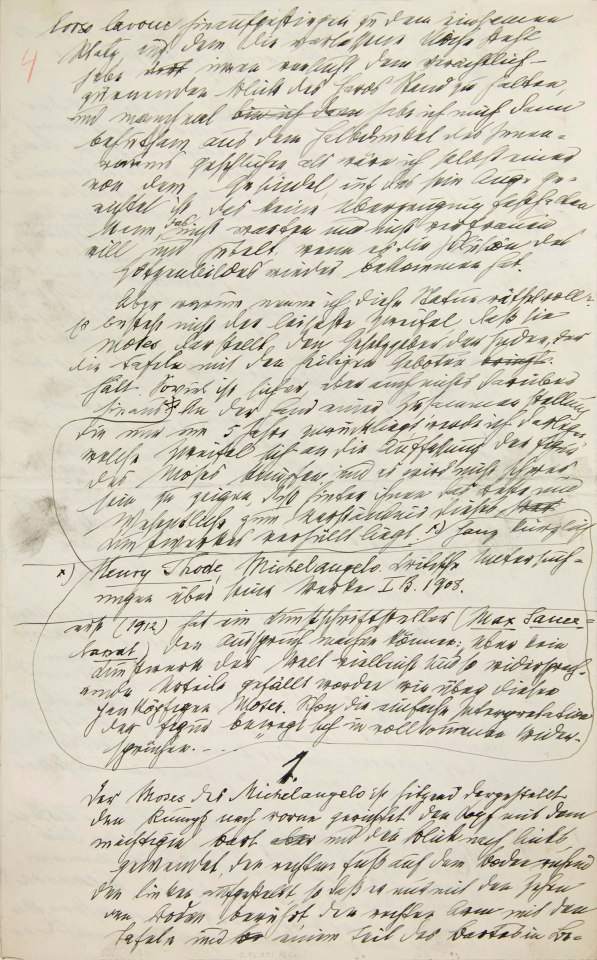 Corso Cavour hinaufgestiegen zu dem einsamen
Platz auf dem die verlassene Kirche steht
habe immer versucht dem verächtlich-
zürnenden Blick des Heros Stand zu halten,
und manchmal bin ich dann habe ich mich dann
behutsam aus dem Halbdunkel des Innen-
raums geschlichen als wäre ich selbst einer
von dem Gesindel, auf das sein Auge ge-
richtet ist, das keine Überzeugung festhalten
kann, das nicht warten und nicht vertrauen
will und jubelt, wenn es die Illusion des
Götzenbildes wieder bekommen hat.
Aber warum nenne ich diese Statue rätselvoll?
Es besteht nicht der leiseste Zweifel, daß sie
Moses darstellt, den Gesetzgeber der Juden, der
die Tafeln mit den heiligen Geboten
hält. Soviel ist sicher, aber auch nichts darüber
hinaus. An der Hand einer Zusammenstellung
die nun um 5 Jahre zurückliegt werde ich
welche Zweifel sich an die Auffassung der Figur
des Moses knüpfen und es wird nicht schwer
sein zu zeigen daß hinter ihnen das Beste und
Wesentliche zum Verständnis dieses
Kunstwerkes verhüllt liegt. x) Ganz kürzlich
x) Henry Thode, Michelangelo. Kritische Untersuch-
ungen über seine Werke I B. 1908.
erst (1912) hat ein Kunstschriftsteller (Max Sauer-
landt) den Ausspruch machen können: über kein
Kunstwerk der Welt vielleicht sind so widersprech-
ende Urteile gefällt worden wie über diesen
panköpfigen Moses. Schon die einfache Interpretation
der Figur bewegt sich in vollkommenen Wider-
sprüchen. ...
1.
Der Moses des Michelangelo ist sitzend dargestellt
den Rumpf nach vorne gerichtet den Kopf mit dem
mächtigen Bart aber und den Blick nach links
gewendet, den rechten Fuß auf dem Boden ruhend
den linken aufgestellt so daß er nur mit den Zehen
den Boden berührt den rechten Arm mit den
Tafeln und einem Teil des Bartes in Be-